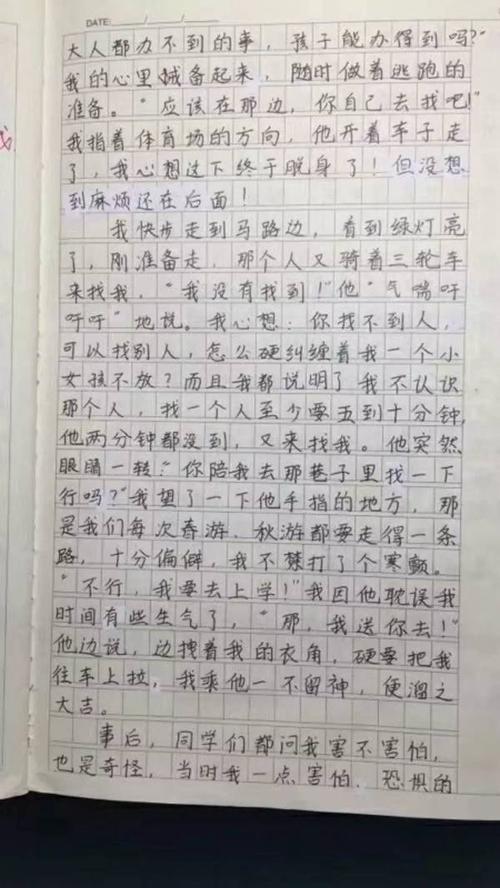 DATE: / /
大人都办不到的事，孩子能办得到吗？"
我的心里械备起来，随时做着逃跑的
准备。"应该在那边，你自己去找吧！"
我指着体育场的方向，他开着车子走
了，我心想这下终于脱身了！但没想
到麻烦还在后面！
我快步走到马路边，看到绿灯亮
了，刚准备走，那个人又骑着三轮车
来找我，"我没有找到！"他"气喘吁
吁吁"地说。我心想：你找不到人，
可以找别人，怎么硬纠缠着我一个小
女孩不放？而且我都说明了我不认识
那个人，找一个人至少要五到十分钟，
他两分钟都没到，又来找我。他突然
眼睛一转："你陪我去那巷子里找一下
行吗？"我望了一下他手指的地方，那
是我们每次春游、秋游都要走得一条
路，十分偏僻，我不禁打了个寒颤。
"不行，我要去上学！"我因他耽误我
时间有些生气了，"那，我送你去！"
他边说，边拽着我的衣角，硬要把我
往车上拉，我乘他一不留神，便溜之
大吉。
事后，同学们都问我害不害怕，
也是奇怪，当时我一点害怕、恐惧的